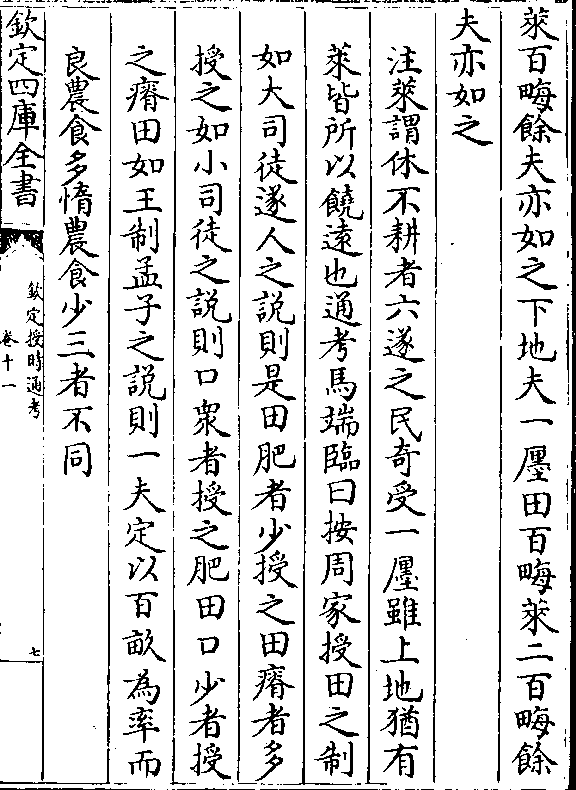 萊百畮餘夫亦如之下地夫一廛田百畮萊二百畮餘
夫亦如之
注萊謂休不耕者六遂之民奇受一廛雖上地猶有
萊皆所以饒遠也通考馬端臨曰按周家授田之制
如大司徒遂人之説則是田肥者少授之田瘠者多
授之如小司徒之説則口衆者授之肥田口少者授
之瘠田如王制孟子之説則一夫定以百畝為率而
良農食多惰農食少三者不同
欽定四庫全書
欽定授時通考
卷十一
七